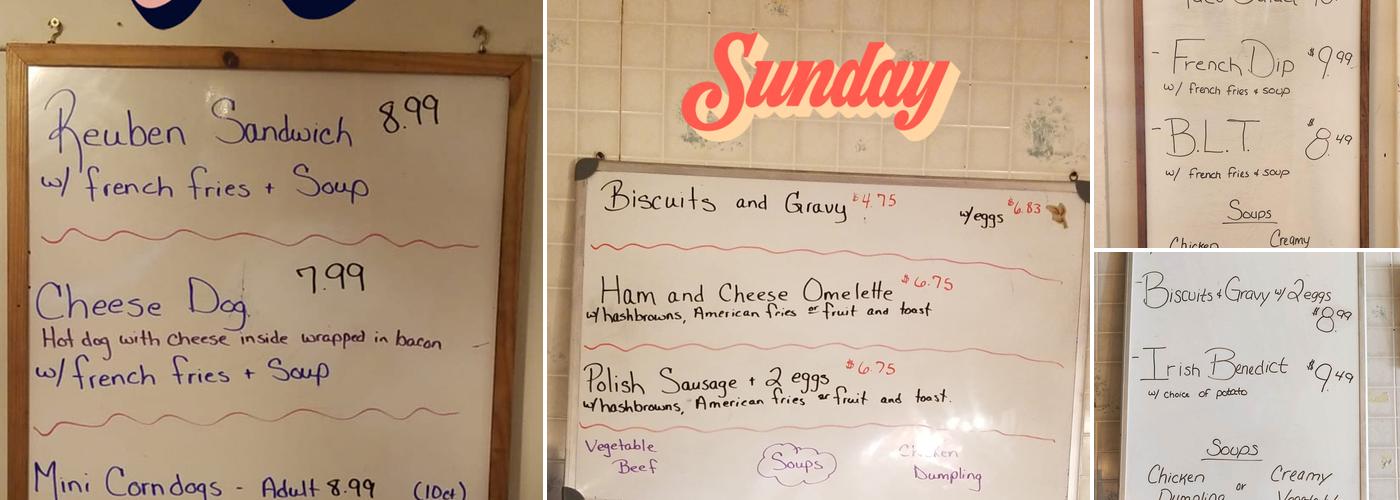 Reuben Sandwich 8.99
w/ french fries + Soup
Cheese Dog 7.99
Hot dog with cheese inside wrapped in bacon
w/ french fries + Soup
Mini Corndogs - Adult 8.99 (10ct)
Sunday
Biscuits and Gravy $4.75 w/eggs $6.83
Ham and Cheese Omelette $6.75
w/hashbrowns, American fries or fruit and toast
Polish Sausage + 2 eggs $6.75
w/hashbrowns, American fries or fruit and toast.
Vegetable Beef
Soups
Chicken Dumpling
- French Dip $9.99
w/ french fries + soup
- B.L.T. $8.49
w/ french fries + soup
Soups
Chicken Creamy
- Biscuits + Gravy w/ 2 eggs
$8.99
- Irish Benedict $9.49
w/ choice of potato
Soups
Chicken Creamy
Dumpling or